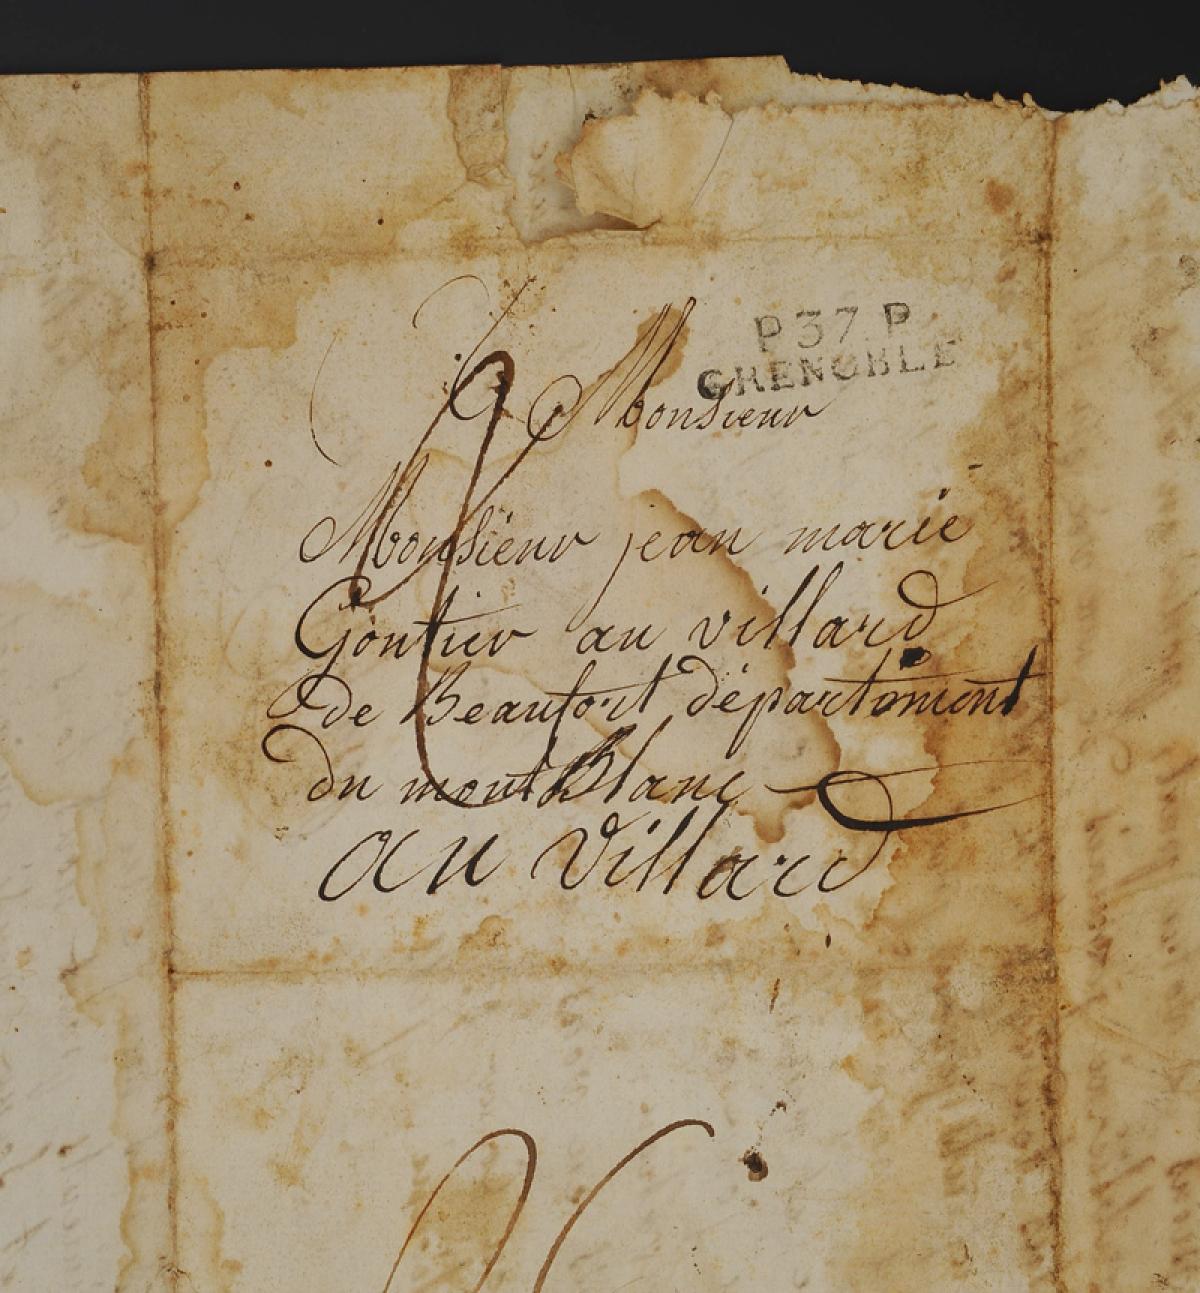 P 37 P
GRENOBLE
Monsieur
Monsieur jean marie
Gontier au villard
de Beaufort département
du mont Blanc
au villard